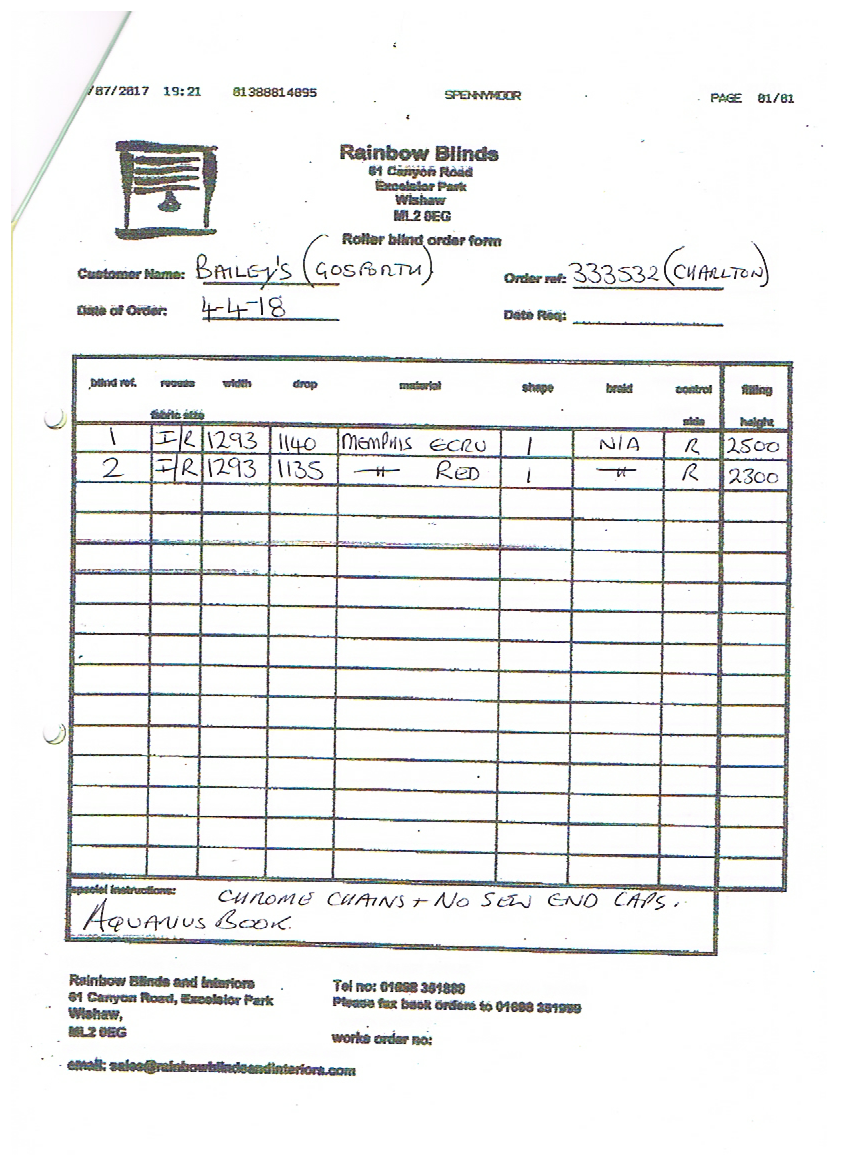 /07/2017 19:21 01388814895 SPENNYMOOR PAGE 01/01
Rainbow Blinds
61 Canyon Road
Excelsior Park
Wishaw
ML2 0EG
Roller blind order form
Customer Name: BAILEY'S (GOSFORTH) Order ref: 333532 (CHARLTON)
Date of Order: 4-4-18 Date Req:
blind ref. recess width drop material shape braid control fitting
fabric size side height
1 I/R 1293 1140 MEMPHIS ECRU 1 N/A R 2500
2 I/R 1293 1135 —"— RED 1 —"— R 2300
special instructions: CHROME CHAINS + NO SEW END CAPS.
AQUARIUS BOOK.
Rainbow Blinds and Interiors Tel no: 01698 351888
61 Canyon Road, Excelsior Park Please fax back orders to 01698 351999
Wishaw,
ML2 0EG works order no:
email: sales@rainbowblindsandinteriors.com